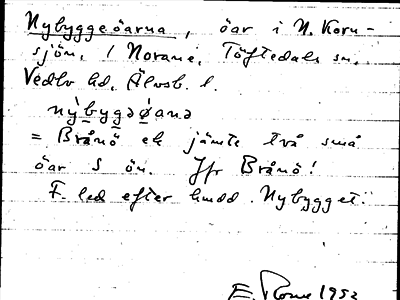 Nybyggeöarna, öar i N. Korn-
sjön, / Norane, Töftedals sn,
Vedbo hd, Älvsb. l.
nỳbygəǿanə
= Brånö ek jämte två små
öar S ön. Jfr Brånö!
F. led efter hmdd. Nybygget.
1952